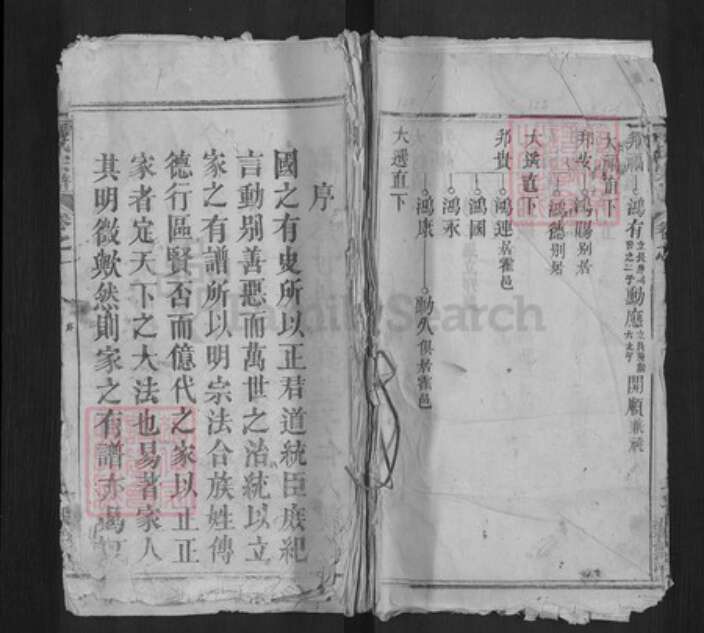 邦 鴻有 動應 開順
大 直下
邦 鴻賜別居
鴻德別居
大遜直下
邦貴 鴻連居霍邑
鴻國
鴻永
鴻康 動久俱居霍邑
大遜直下
序
國之有史所以正君道統臣庶紀
言動别善惡而萬世之治統以立
家之有譜所以明宗法合族姓傳
德行區賢否而億代之家以正正
家者定天下之大法也易著家人
其明徵歟然則家之有譜亦
FamilySearch